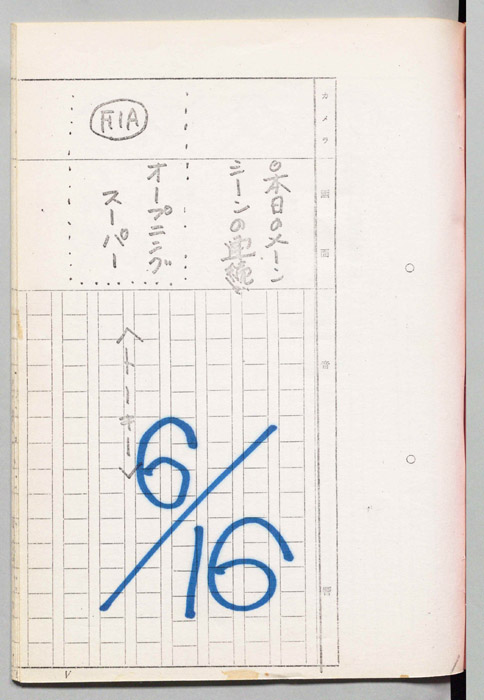 カメラ
画面
音
⦿本日のメーン
シーンの連続
オープニング
スーパー
〈トーキー〉
6/16